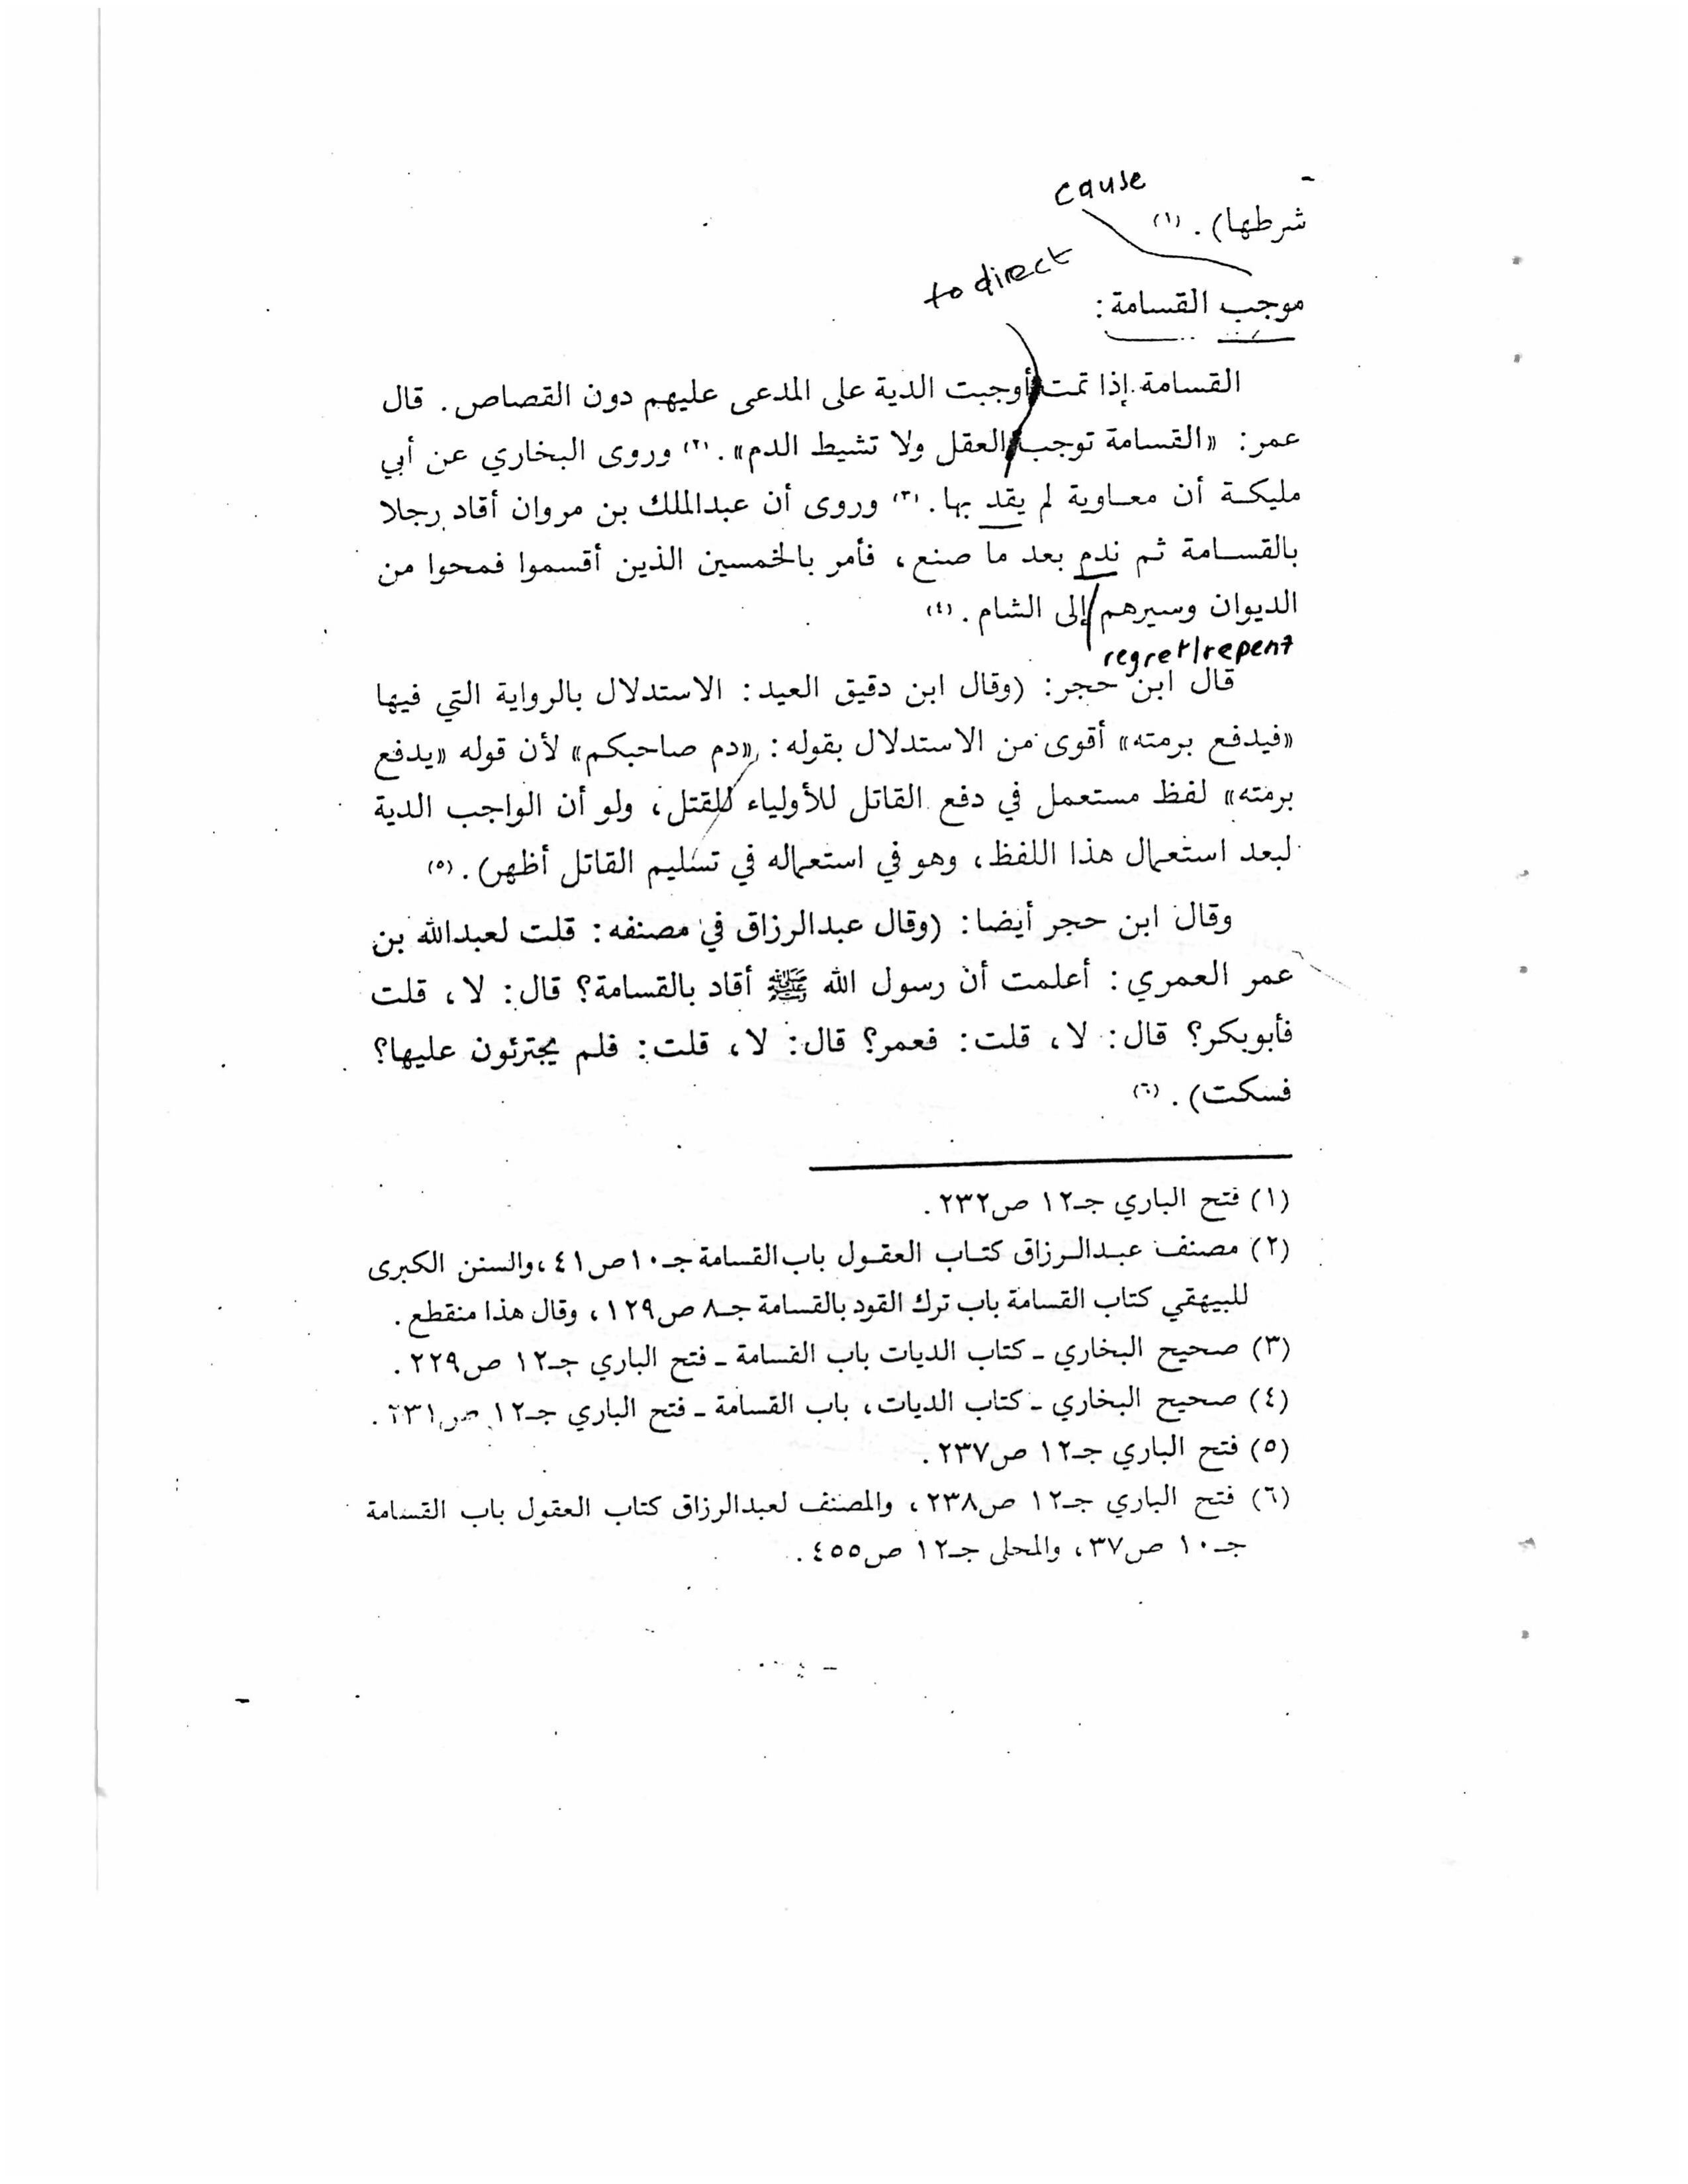 cause
شرطها). (١)
to direct
موجب القسامة:
القسامة إذا تمت أوجبت الدية على المدعى عليهم دون القصاص. قال
عمر: «القسامة توجب العقل ولا تشيط الدم». (٢) وروى البخاري عن أبي
مليكة أن معاوية لم يقد بها. (٣) وروى أن عبدالملك بن مروان أقاد رجلا
بالقسامة ثم ندم بعد ما صنع، فأمر بالخمسين الذين أقسموا فمحوا من
الديوان وسيرهم إلى الشام. (٤)
regret/repent
قال ابن حجر: (وقال ابن دقيق العيد: الاستدلال بالرواية التي فيها
«فيدفع برمته» أقوى من الاستدلال بقوله: «دم صاحبكم» لأن قوله «يدفع
برمته» لفظ مستعمل في دفع القاتل للأولياء للقتل، ولو أن الواجب الدية
لبعد استعمال هذا اللفظ، وهو في استعماله في تسليم القاتل أظهر). (٥)
وقال ابن حجر أيضا: (وقال عبدالرزاق في مصنفه: قلت لعبدالله بن
عمر العمري: أعلمت أن رسول الله ﷺ أقاد بالقسامة؟ قال: لا، قلت
فأبوبكر؟ قال: لا، قلت: فعمر؟ قال: لا، قلت: فلم يجترئون عليها؟
فسكت). (٦)
(١) فتح الباري جـ١٢ ص٢٣٢.
(٢) مصنف عبدالرزاق كتاب العقول باب القسامة جـ١٠ ص٤١، والسنن الكبرى
للبيهقي كتاب القسامة باب ترك القود بالقسامة جـ٨ ص١٢٩، وقال هذا منقطع.
(٣) صحيح البخاري ـ كتاب الديات باب القسامة ـ فتح الباري جـ١٢ ص٢٢٩.
(٤) صحيح البخاري ـ كتاب الديات، باب القسامة ـ فتح الباري جـ١٢ ص٢٣١.
(٥) فتح الباري جـ١٢ ص٢٣٧.
(٦) فتح الباري جـ١٢ ص٢٣٨، والمصنف لعبدالرزاق كتاب العقول باب القسامة
جـ١٠ ص٣٧، والمحلى جـ١٢ ص٤٥٥.